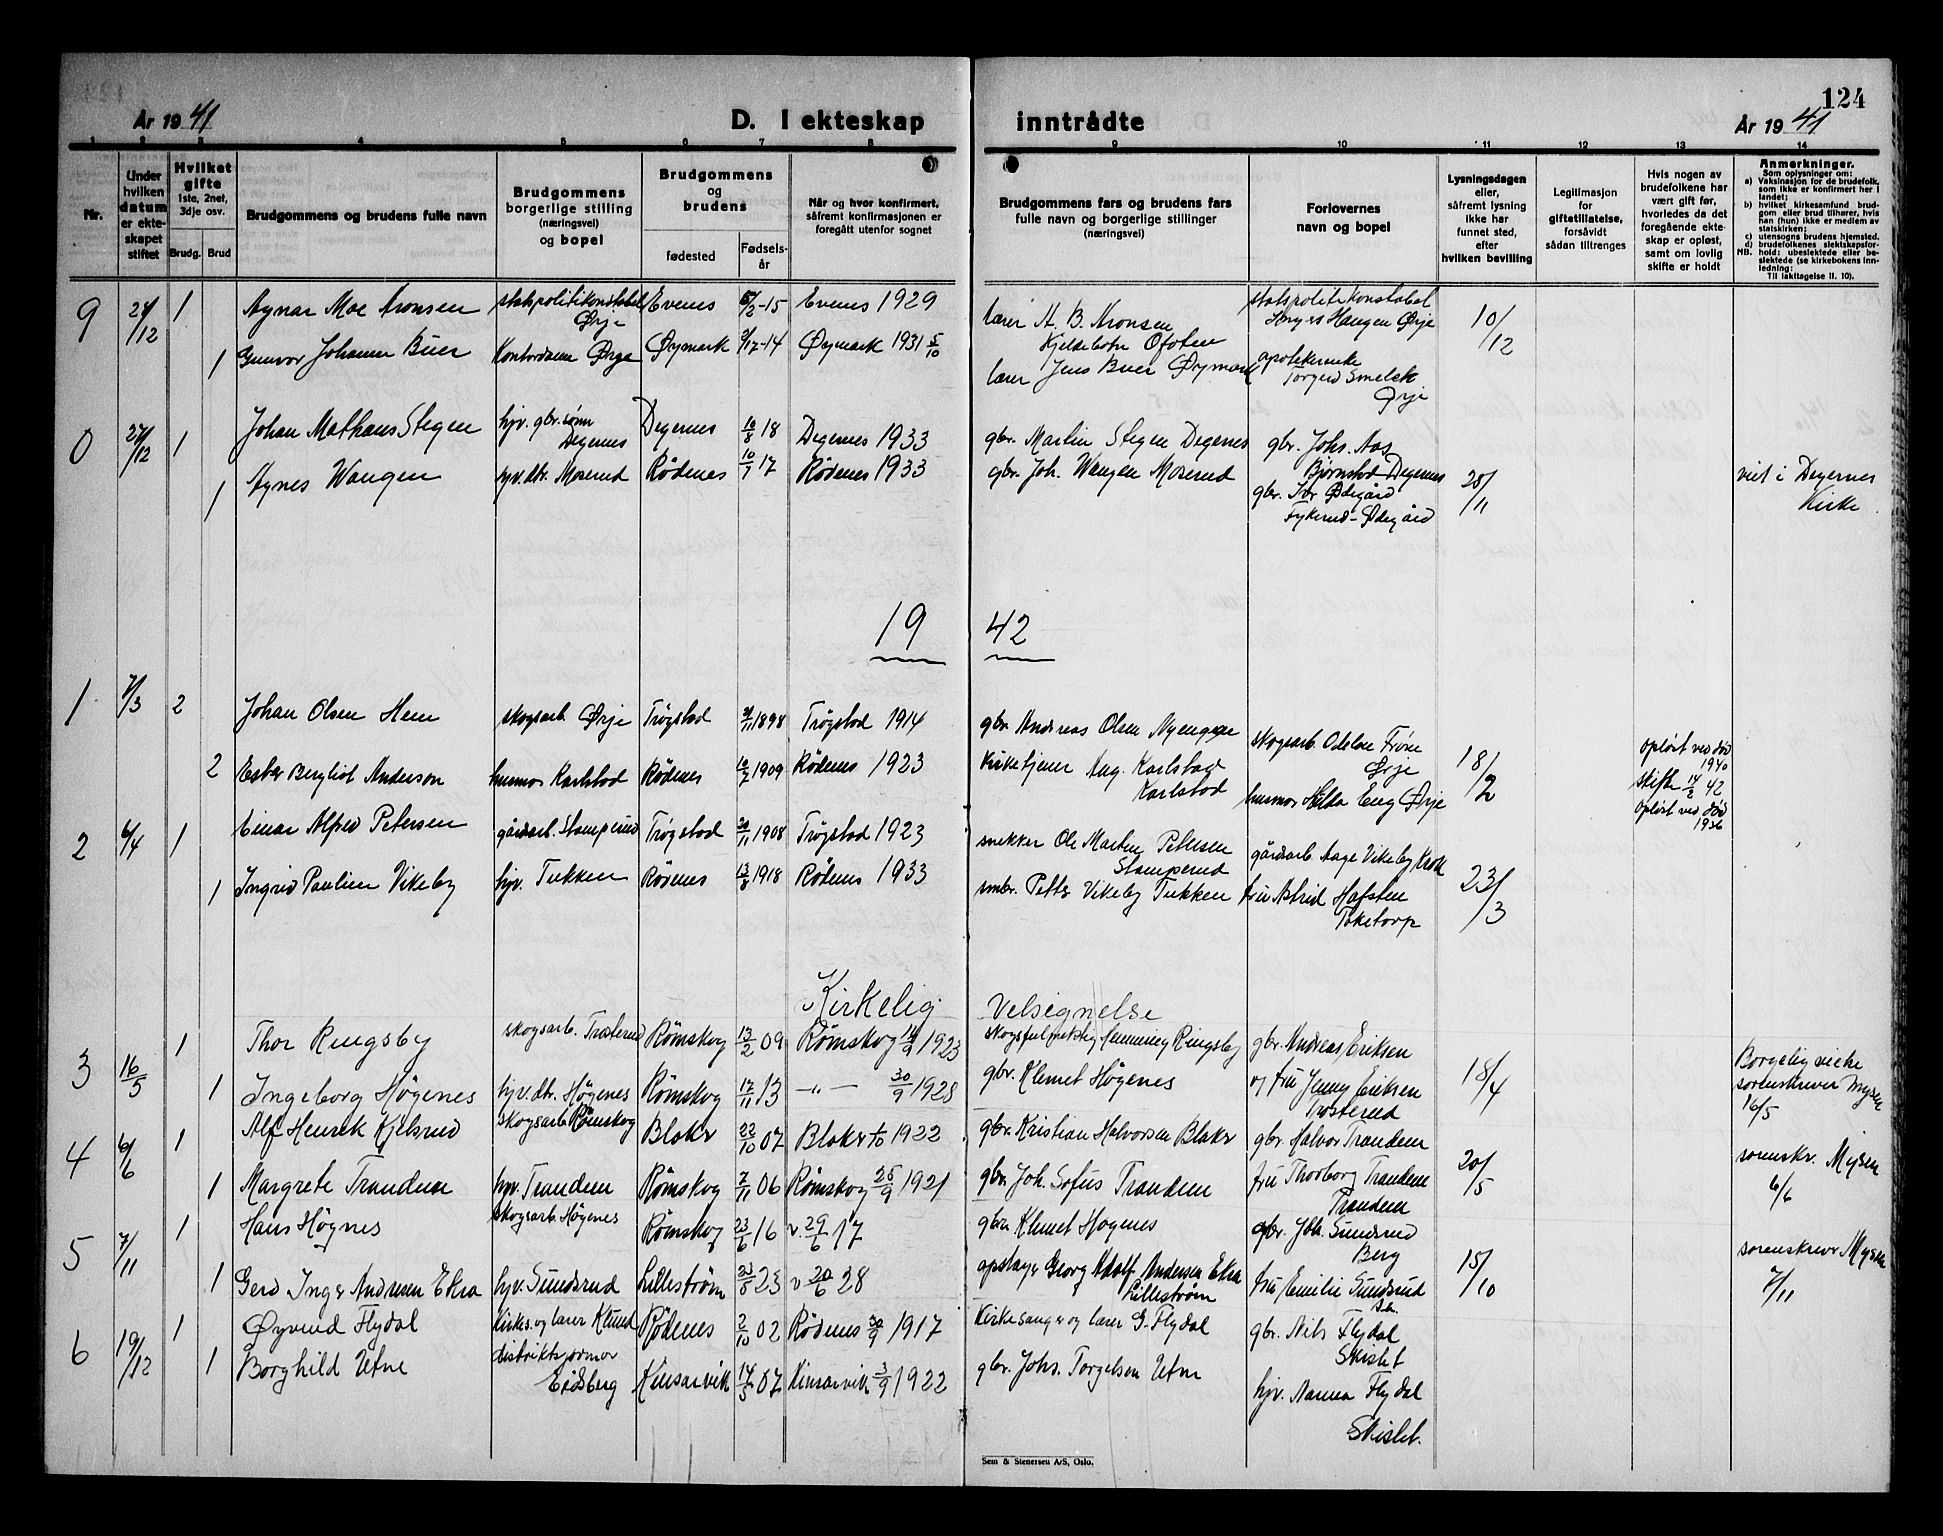 124
År 1941
D. I ekteskap inntrådte
År 1941
1 2 3 4 5 6 7 8 9 10 11 12 13 14
Nr.
Under hvilken datum er ekteskapet stiftet
Hvilket gifte 1ste, 2net, 3dje osv.
Brudg. Brud
Brudgommens og brudens fulle navn
Brudgommens borgerlige stilling (næringsvei) og bopel
Brudgommens og brudens
fødested
Fødselsår
Når og hvor konfirmert, såfremt konfirmasjonen er foregått utenfor sognet
Brudgommens fars og brudens fars fulle navn og borgerlige stillinger (næringsvei)
Forlovernes navn og bopel
Lysningsdagen eller, såfremt lysning ikke har funnet sted, efter hvilken bevilling
Legitimasjon for giftetillatelse, forsåvidt sådan tiltrenges
Hvis nogen av brudefolkene har vært gift før, hvorledes da det foregående ekteskap er opløst, samt om lovlig skifte er holdt
Anmerkninger.
Som oplysninger om:
a) Vaksinasjon for de brudefolk, som ikke er konfirmert her i landet;
b) hvilket kirkesamfund brudgom eller brud tilhører, hvis han (hun) ikke er medlem av statskirken;
c) utensogns brudens hjemsted.
d) brudefolkenes slektskapsforhold: ubeslektede eller beslektede (se kirkebokens innledning:
NB. Til iakttagelse ll. 10).
9 24/12 1 Agnar Moe Aronsen statspolitikonstabel Ørje Evenes 5/2-15 Evenes 1929 lærer A. B. Aronsen Kjeldebotn Ofoten statspolitikonstabel Haugen Ørje 10/12
1 Gunvor Johanne Buer Kontordame Ørje Øymark 2/12-14 Øymark 1931 5/10 lærer Jens Buer Øymark apotekerenke Torgerd Smelsk Ørje
0 27/12 1 Johan Mathaus Stegen hjv. gbr. sønn Degernes Degernes 10/8 18 Degernes 1933 gbr. Martin Stegen Degernes gbr. Johs. Aas Bjørnstad Degernes
1 Agnes Wangen hjv. dtr. Moserud Rødenes 10/7 17 Rødenes 1933 gbr. Joh. Wangen Moserud gbr. Ivar Ødegård Fykerud-Ødegård 28/11 viet i Degernes Kirke
19 42
1 7/3 2 Johan Olsen Hem skogsarb. Ørje Trøgstad 21/11 1898 Trøgstad 1914 gbr. Andreas Olsen Nyengene skogsarb. Odelse Frøne Ørje 18/2 opløst ved død 1940 skifte 14/2 42
2 Ester Bergliot Anderson husmor Karlstad Rødenes 10/2 1909 Rødenes 1923 Kirketjener Aug. Karlstad Karlstad husmor Hilda Eng Ørje opløst ved død 1936
2 6/4 1 Einar Alfred Petersen gårdsarb. Stomperud Trøgstad 20/11 1908 Trøgstad 1923 snekker Ole Martin Petersen Stomperud gårdsarb. Aage Vikeby Krok
1 Ingrid Pauline Vikeby hjv. Tukken Rødenes 13/8 1918 Rødenes 1933 smbr. Petter Vikeby Tukken fru Astrid Hafsten Toketorp 23/3
Kirkelig Velsignelse
3 16/5 1 Thor Ringsby skogsarb. Trosterud Rømskog 13/2 09 Rømskog 14/9 1923 skogsfulmektig Henning Ringsby gbr. Andreas Eriksen
1 Ingeborg Høgenes hjv. dtr. Høgenes Rømskog 17/11 13 —"— 30/9 1928 gbr. Klemet Høgenes og fru Jenny Eriksen Trosterud 18/4 Borgelig viede sorenskriver Mysen 16/5
4 6/6 1 Alf Henrik Kjelsrud skogsarb. Rømskog Blaker 22/10 07 Blaker 1/10 1922 gbr. Kristian Halvorsen Blaker gbr. Halvor Trandem
1 Margrete Trandem hjv. Trandem Rømskog 7/11 06 Rømskog 25/9 1921 gbr. Joh. Sofus Trandem fru Thorborg Trandem Trandem 20/5 sorenskr. Mysen 6/6
5 7/11 1 Hans Høgnes skogsarb. Høgenes Rømskog 23/6 16 v. 29/6 17 gbr. Klemet Høgenes gbr. Joh. Sundsrud Berg
1 Gerd Inger Andresen Ekra hjv. Sundsrud Lillestrøm 23/5 23 v 20/6 28 opslager Georg Adolf Andersen Ekra Lillestrøm fru Emilie Sundsrud s.s. 15/10 sorenskriver Mysen 7/11
6 19/12 1 Øyvind Flydal Kirkes. og lærer Klund Rødenes 2/10 02 Rødenes 30/9 1917 Kirkesanger og lærer G. Flydal gbr. Nils Flydal Skislet
1 Borghild Utne distriktsjormor Eidsberg Kinsarvik 14/5 07 Kinsarvik 3/9 1922 gbr. Johs. Torgelsen Utne hjv. Nanna Flydal Skislet.
Sem & Stenersen A/S, Oslo.